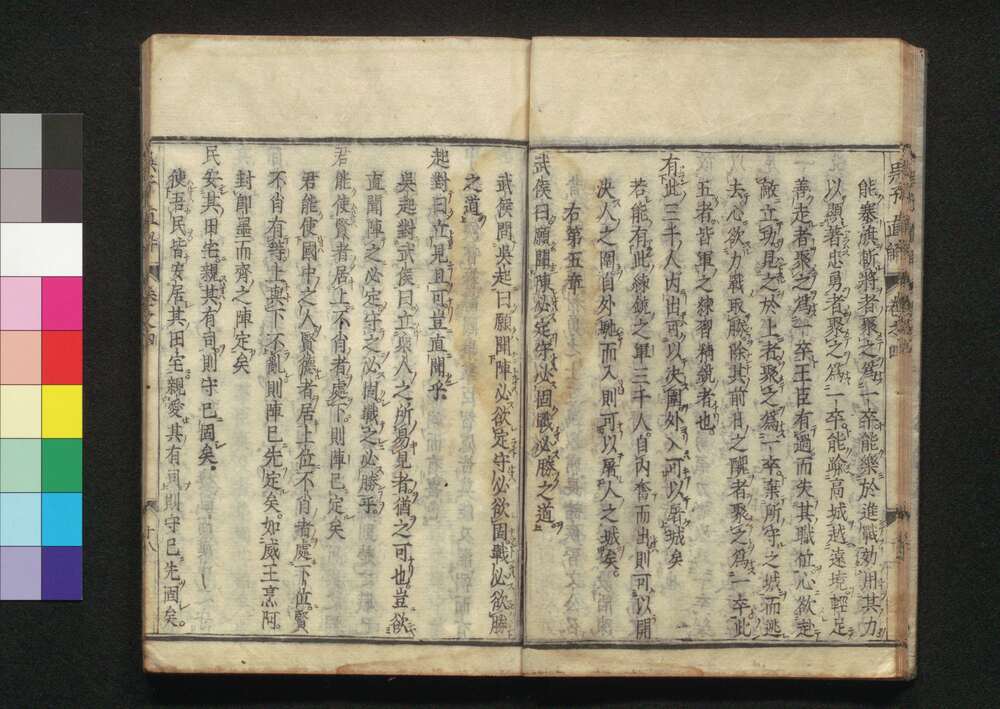 能搴旗斬將者聚之爲一卒能樂於進戰効用其力
以顯著忠勇者聚之爲一卒能踰高城越遠境輕足
善走者聚之爲一卒王臣有過而失其職位心欲
敵立功見之於上者聚之爲一卒棄所守之城而逃
去心欲力戰取勝除其前日之醜者聚之爲一卒此
五者皆軍之練習精銳者也
有此三千人内出可以決圍外入可以屠城矣
若能有此練銳之軍三千人自内奮而出則可以開
決人之圍自外馳而入則可以屠人之城矣
右第五章
武侯曰願聞陳必定守必固戰必勝之道
武侯問吳起曰願聞陣必欲定守必欲固戰必欲勝
之道
起對曰立見且可豈直聞乎
吳起對武侯曰立與人之所易見者猶之可也豈欲
直聞陣之必定守之必固戰之必勝乎
君能使賢者居上不肖者處下則陣已定矣
君能使國中之人賢德者居上位不肖者處下位賢
不肖有等上與下不亂則陣已先定矣如威王烹阿
封即墨而齊之陣定矣
民安其田宅親其有司則守已固矣
使吾民皆安居其田宅親愛其有司則守已先固矣
十八